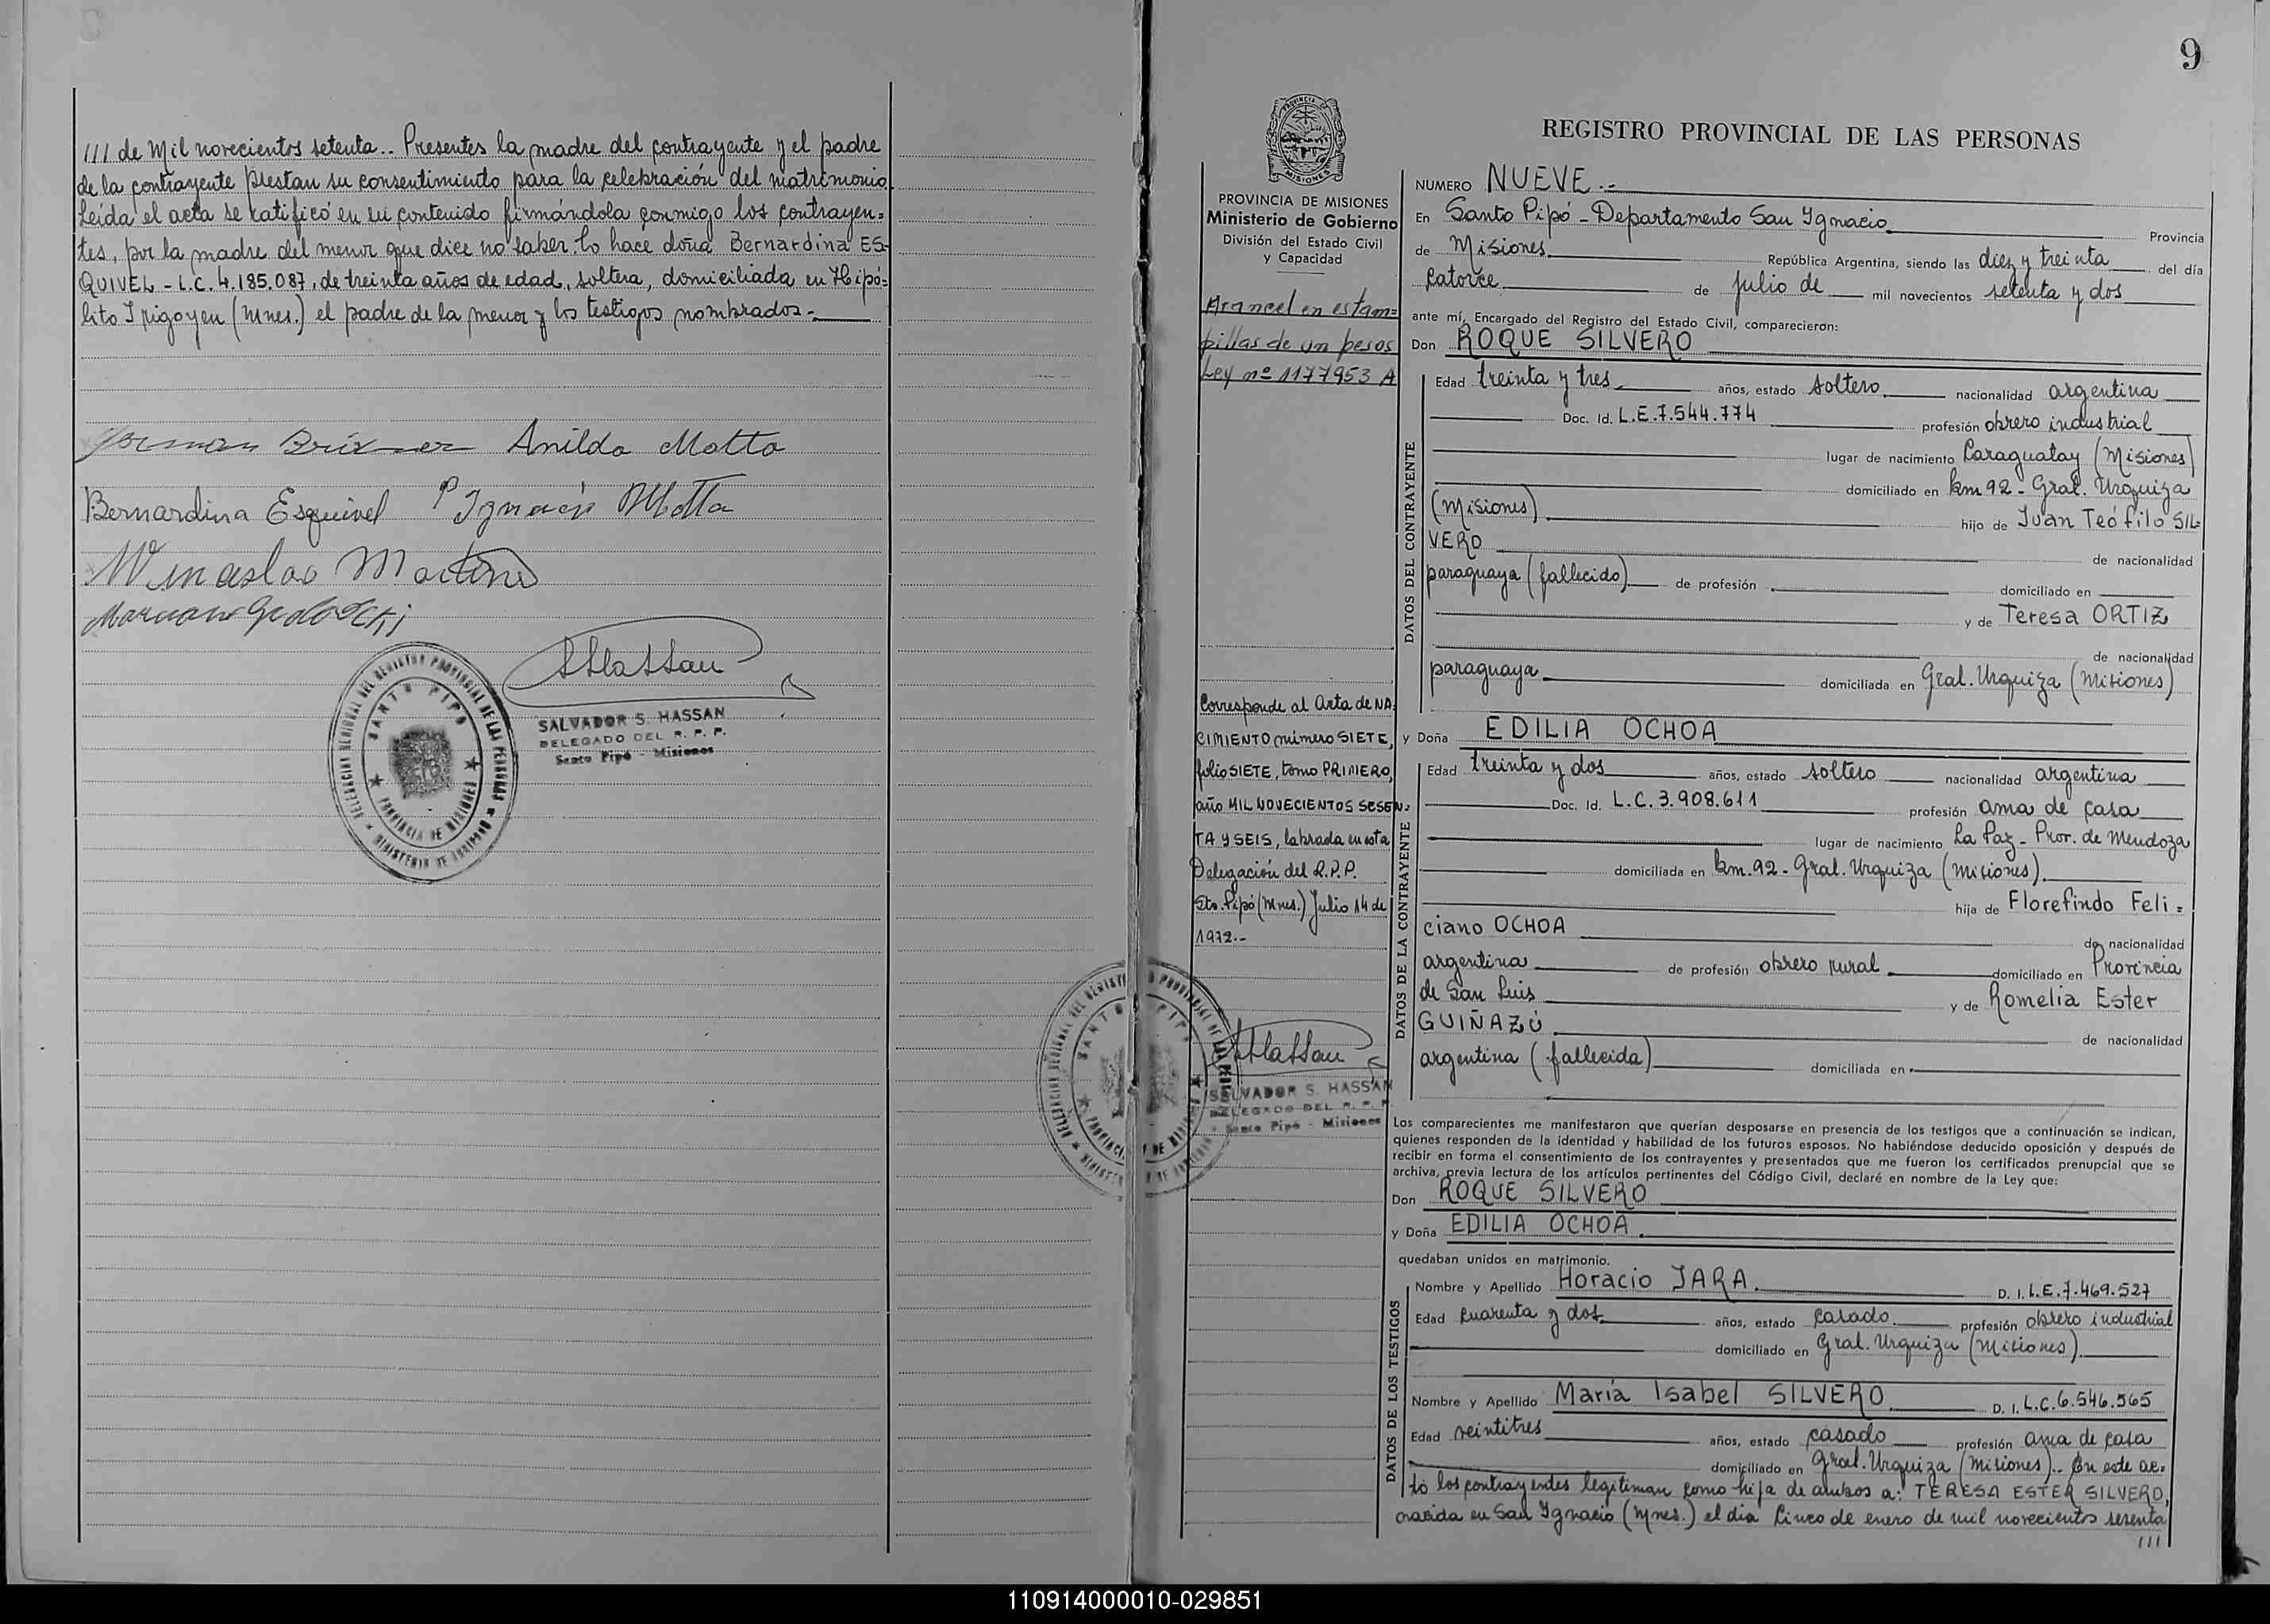 /// de Mil novecientos setenta.. Presentes la madre del contrayente y el padre
de la contrayente prestan su consentimiento para la celebración del matrimonio.
Leída el acta se ratificó en su contenido firmándola conmigo los contrayen=
tes, por la madre del menor que dice no saber lo hace doña Bernardina ES-
QUIVEL - L.C. 4.185.087, de treinta años de edad, soltera, domiciliada en Hipó=
lito Irigoyen (Mnes.) el padre de la menor y los testigos nombrados.-
Anilda Motta
Bernardina Esquivel Ignacio Motta
SALVADOR S. HASSAN
DELEGADO DEL R. P. P.
Santo Pipó - Misiones
DELEGACION REGIONAL DEL REGISTRO PROVINCIAL DE LAS PERSONAS
SANTO PIPO
PROVINCIA DE MISIONES
MINISTERIO DE GOBIERNO
9
PROVINCIA DE MISIONES
Ministerio de Gobierno
División del Estado Civil
y Capacidad
Arancel en estam=
pillas de un pesos
Ley nº 1177953 A
Corresponde al Acta de NA-
CIMIENTO número SIETE,
folio SIETE, tomo PRIMERO,
año MIL NOVECIENTOS SESEN=
TA Y SEIS, labrada en esta
Delegación del R.P.P.
Sto. Pipó (Mnes.) Julio 14 de
1972.-
SALVADOR S. HASSAN
DELEGADO DEL R. P. P.
Santo Pipó - Misiones
REGISTRO PROVINCIAL DE LAS PERSONAS
NUMERO NUEVE.-
En Santo Pipó - Departamento San Ignacio Provincia
de Misiones República Argentina, siendo las diez y treinta del día
catorce de julio de mil novecientos setenta y dos
ante mí, Encargado del Registro del Estado Civil, comparecieron:
Don ROQUE SILVERO
DATOS DEL CONTRAYENTE
Edad treinta y tres años, estado soltero nacionalidad argentina
Doc. Id. L.E.7.544.774 profesión obrero industrial
lugar de nacimiento Caraguatay (Misiones)
domiciliado en km 92 - Gral. Urquiza
(Misiones) hijo de Juan Teófilo SIL-
VERO de nacionalidad
paraguaya (fallecido) de profesión domiciliado en
y de Teresa ORTIZ
de nacionalidad
paraguaya domiciliada en Gral. Urquiza (Misiones)
y Doña EDILIA OCHOA
DATOS DE LA CONTRAYENTE
Edad treinta y dos años, estado soltero nacionalidad argentina
Doc. Id. L.C. 3.908.611 profesión ama de casa
lugar de nacimiento La Paz - Prov. de Mendoza
domiciliada en km.92 - Gral. Urquiza (Misiones).
hija de Florefindo Feli=
ciano OCHOA de nacionalidad
argentina de profesión obrero rural domiciliado en Provincia
de San Luis y de Romelia Ester
GUIÑAZÚ de nacionalidad
argentina (fallecida) domiciliada en
Los comparecientes me manifestaron que querían desposarse en presencia de los testigos que a continuación se indican,
quienes responden de la identidad y habilidad de los futuros esposos. No habiéndose deducido oposición y después de
recibir en forma el consentimiento de los contrayentes y presentados que me fueron los certificados prenupcial que se
archiva, previa lectura de los artículos pertinentes del Código Civil, declaré en nombre de la Ley que:
Don ROQUE SILVERO
y Doña EDILIA OCHOA
quedaban unidos en matrimonio.
DATOS DE LOS TESTIGOS
Nombre y Apellido Horacio JARA D. I. L.E.7.469.527
Edad cuarenta y dos años, estado casado profesión obrero industrial
domiciliado en Gral. Urquiza (Misiones)
Nombre y Apellido María Isabel SILVERO D. I. L.C.6.546.565
Edad veintitres años, estado casado profesión ama de casa
domiciliado en Gral. Urquiza (Misiones).. En este ac-
to los contrayentes legitiman como hija de ambos a: TERESA ESTER SILVERO,
nacida en San Ignacio (Mnes.) el día Cinco de enero de mil novecientos sesenta
///
110914000010-029851